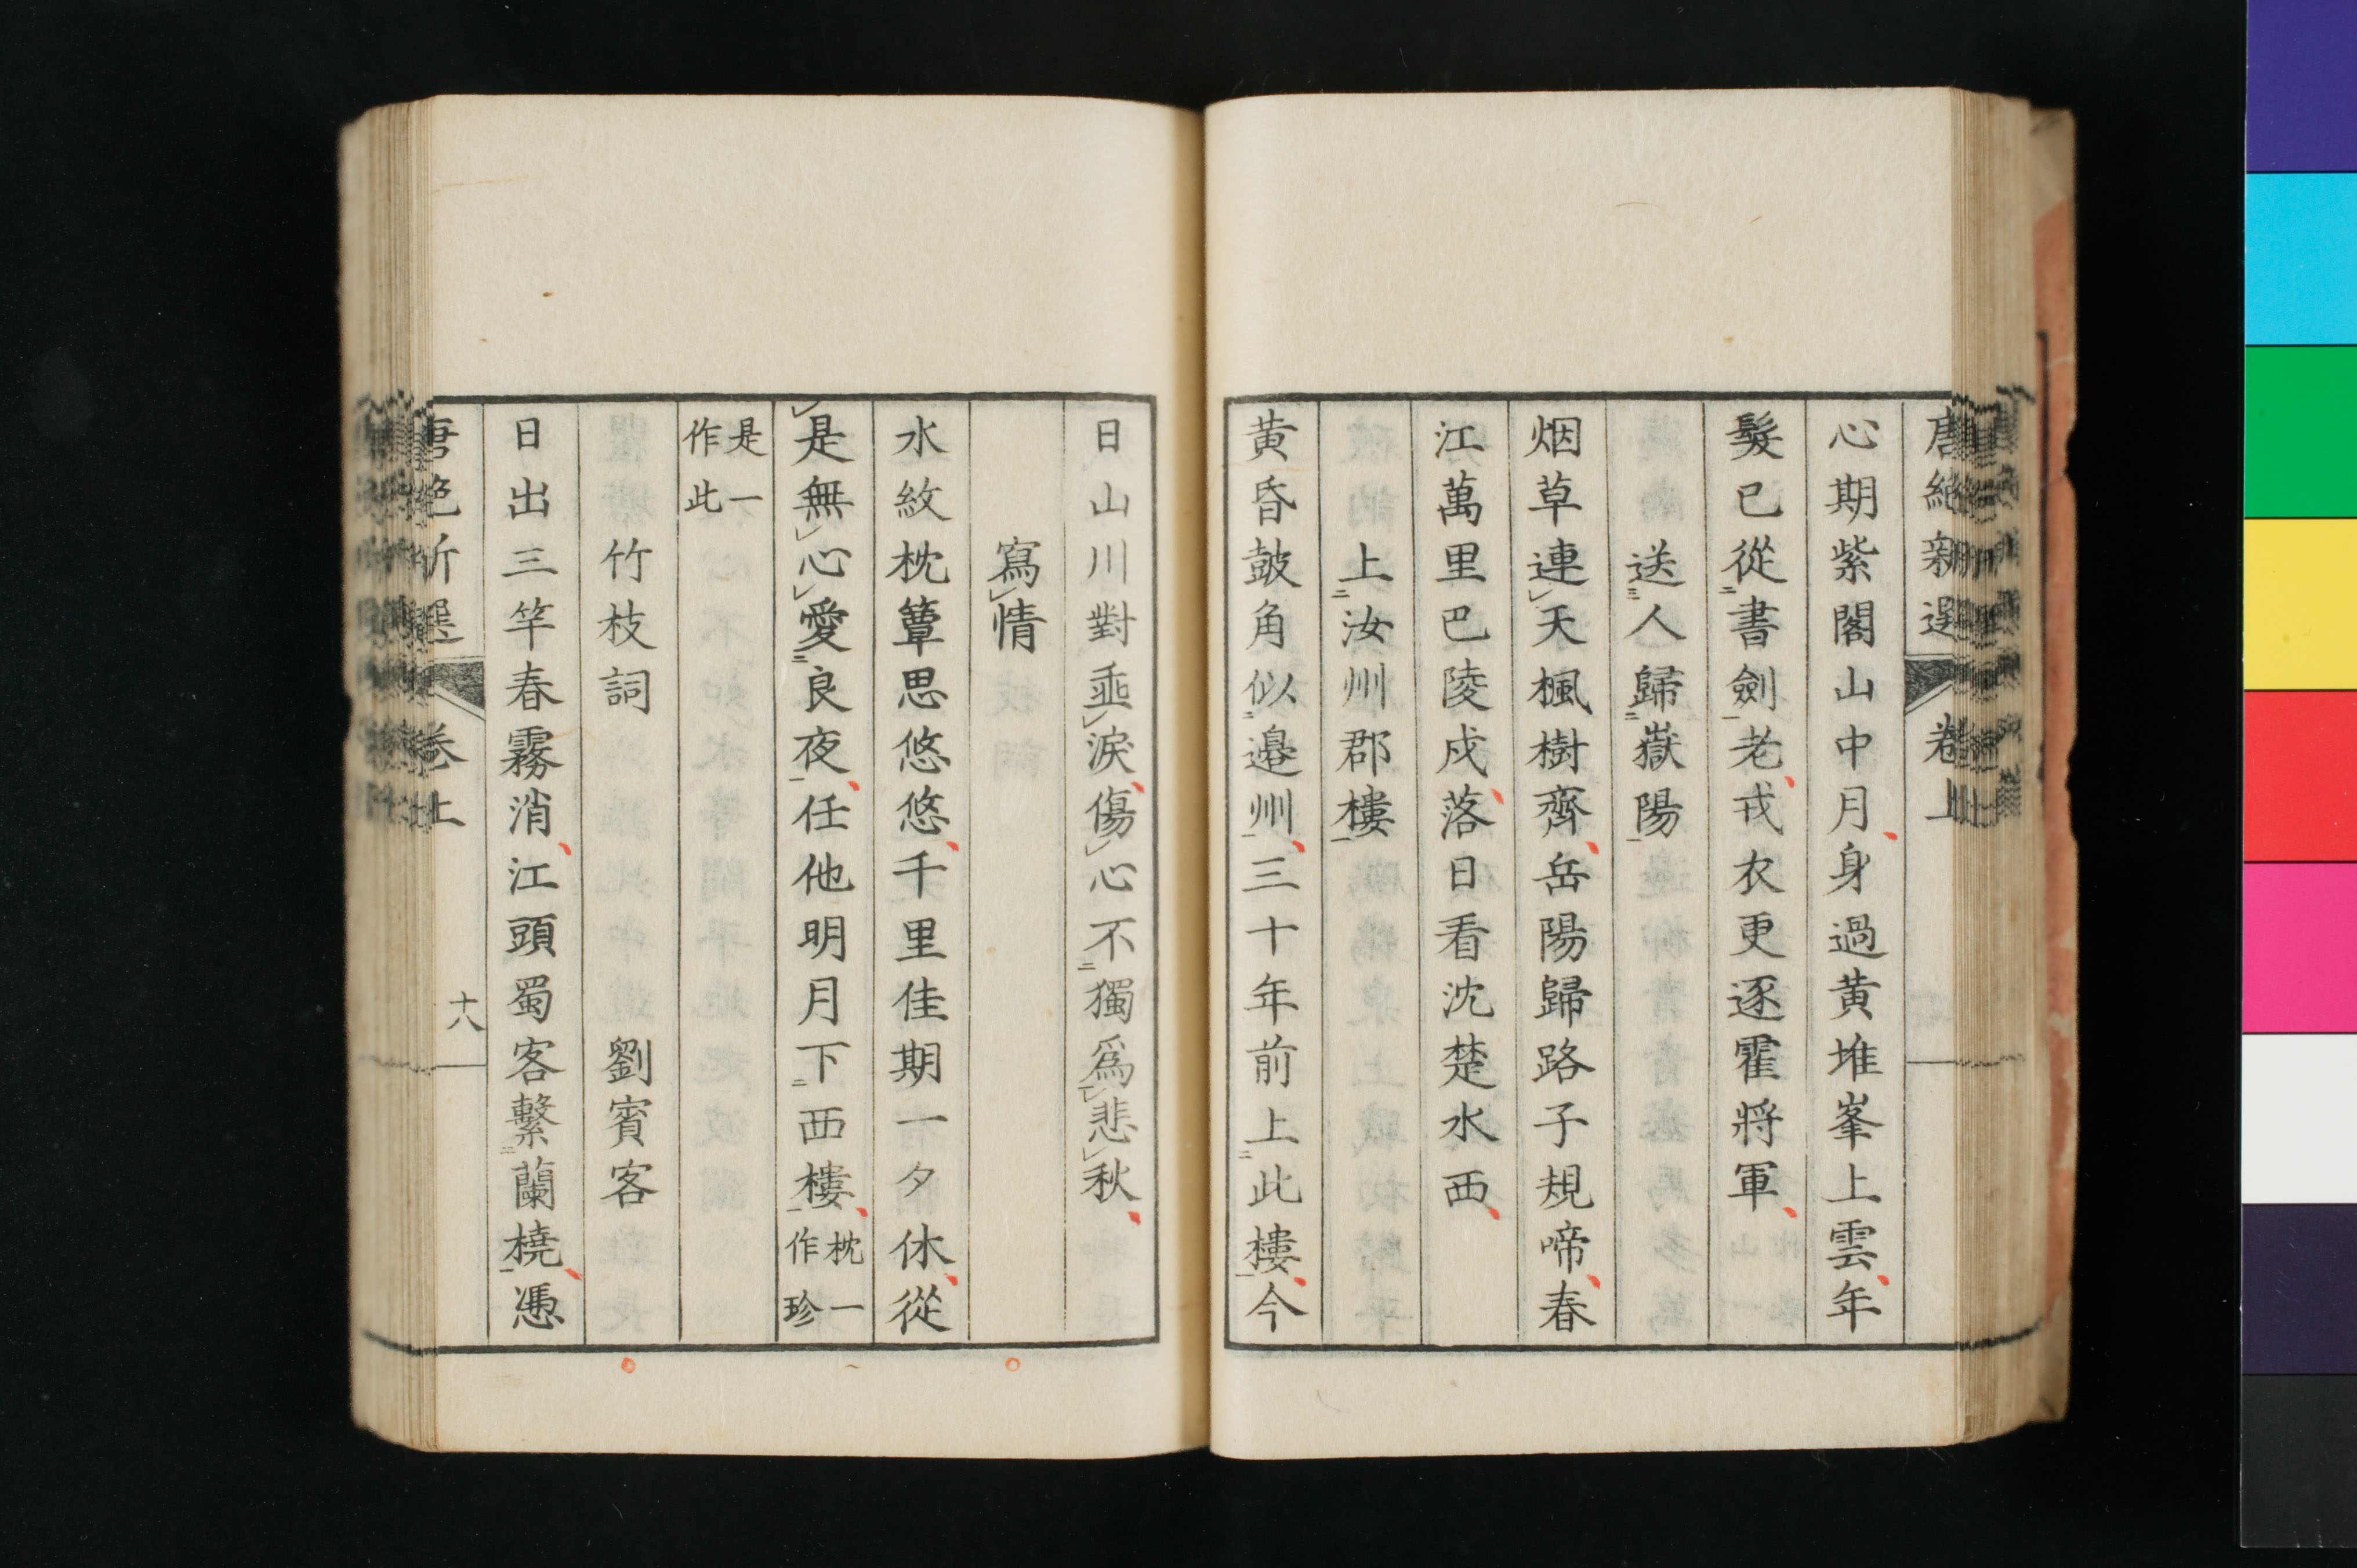 唐絶新選 卷上
心期紫閣山中月身過黄堆峯上雲年
髮已從書劍老戎衣更逐霍將軍
送人歸嶽陽
烟草連天楓樹齊岳陽歸路子規啼春
江萬里巴陵戍落日看沈楚水西
上汝州郡樓
黄昏鼓角似邊州三十年前上此樓今
日山川對垂淚傷心不獨爲悲秋
寫情
水紋枕簟思悠悠千里佳期一夕休從
是無心愛良夜任他明月下西樓枕一作珍
是一作此
竹枝詞 劉賓客
日出三竿春霧消江頭蜀客繫蘭橈憑
唐絶新選 卷上 十八